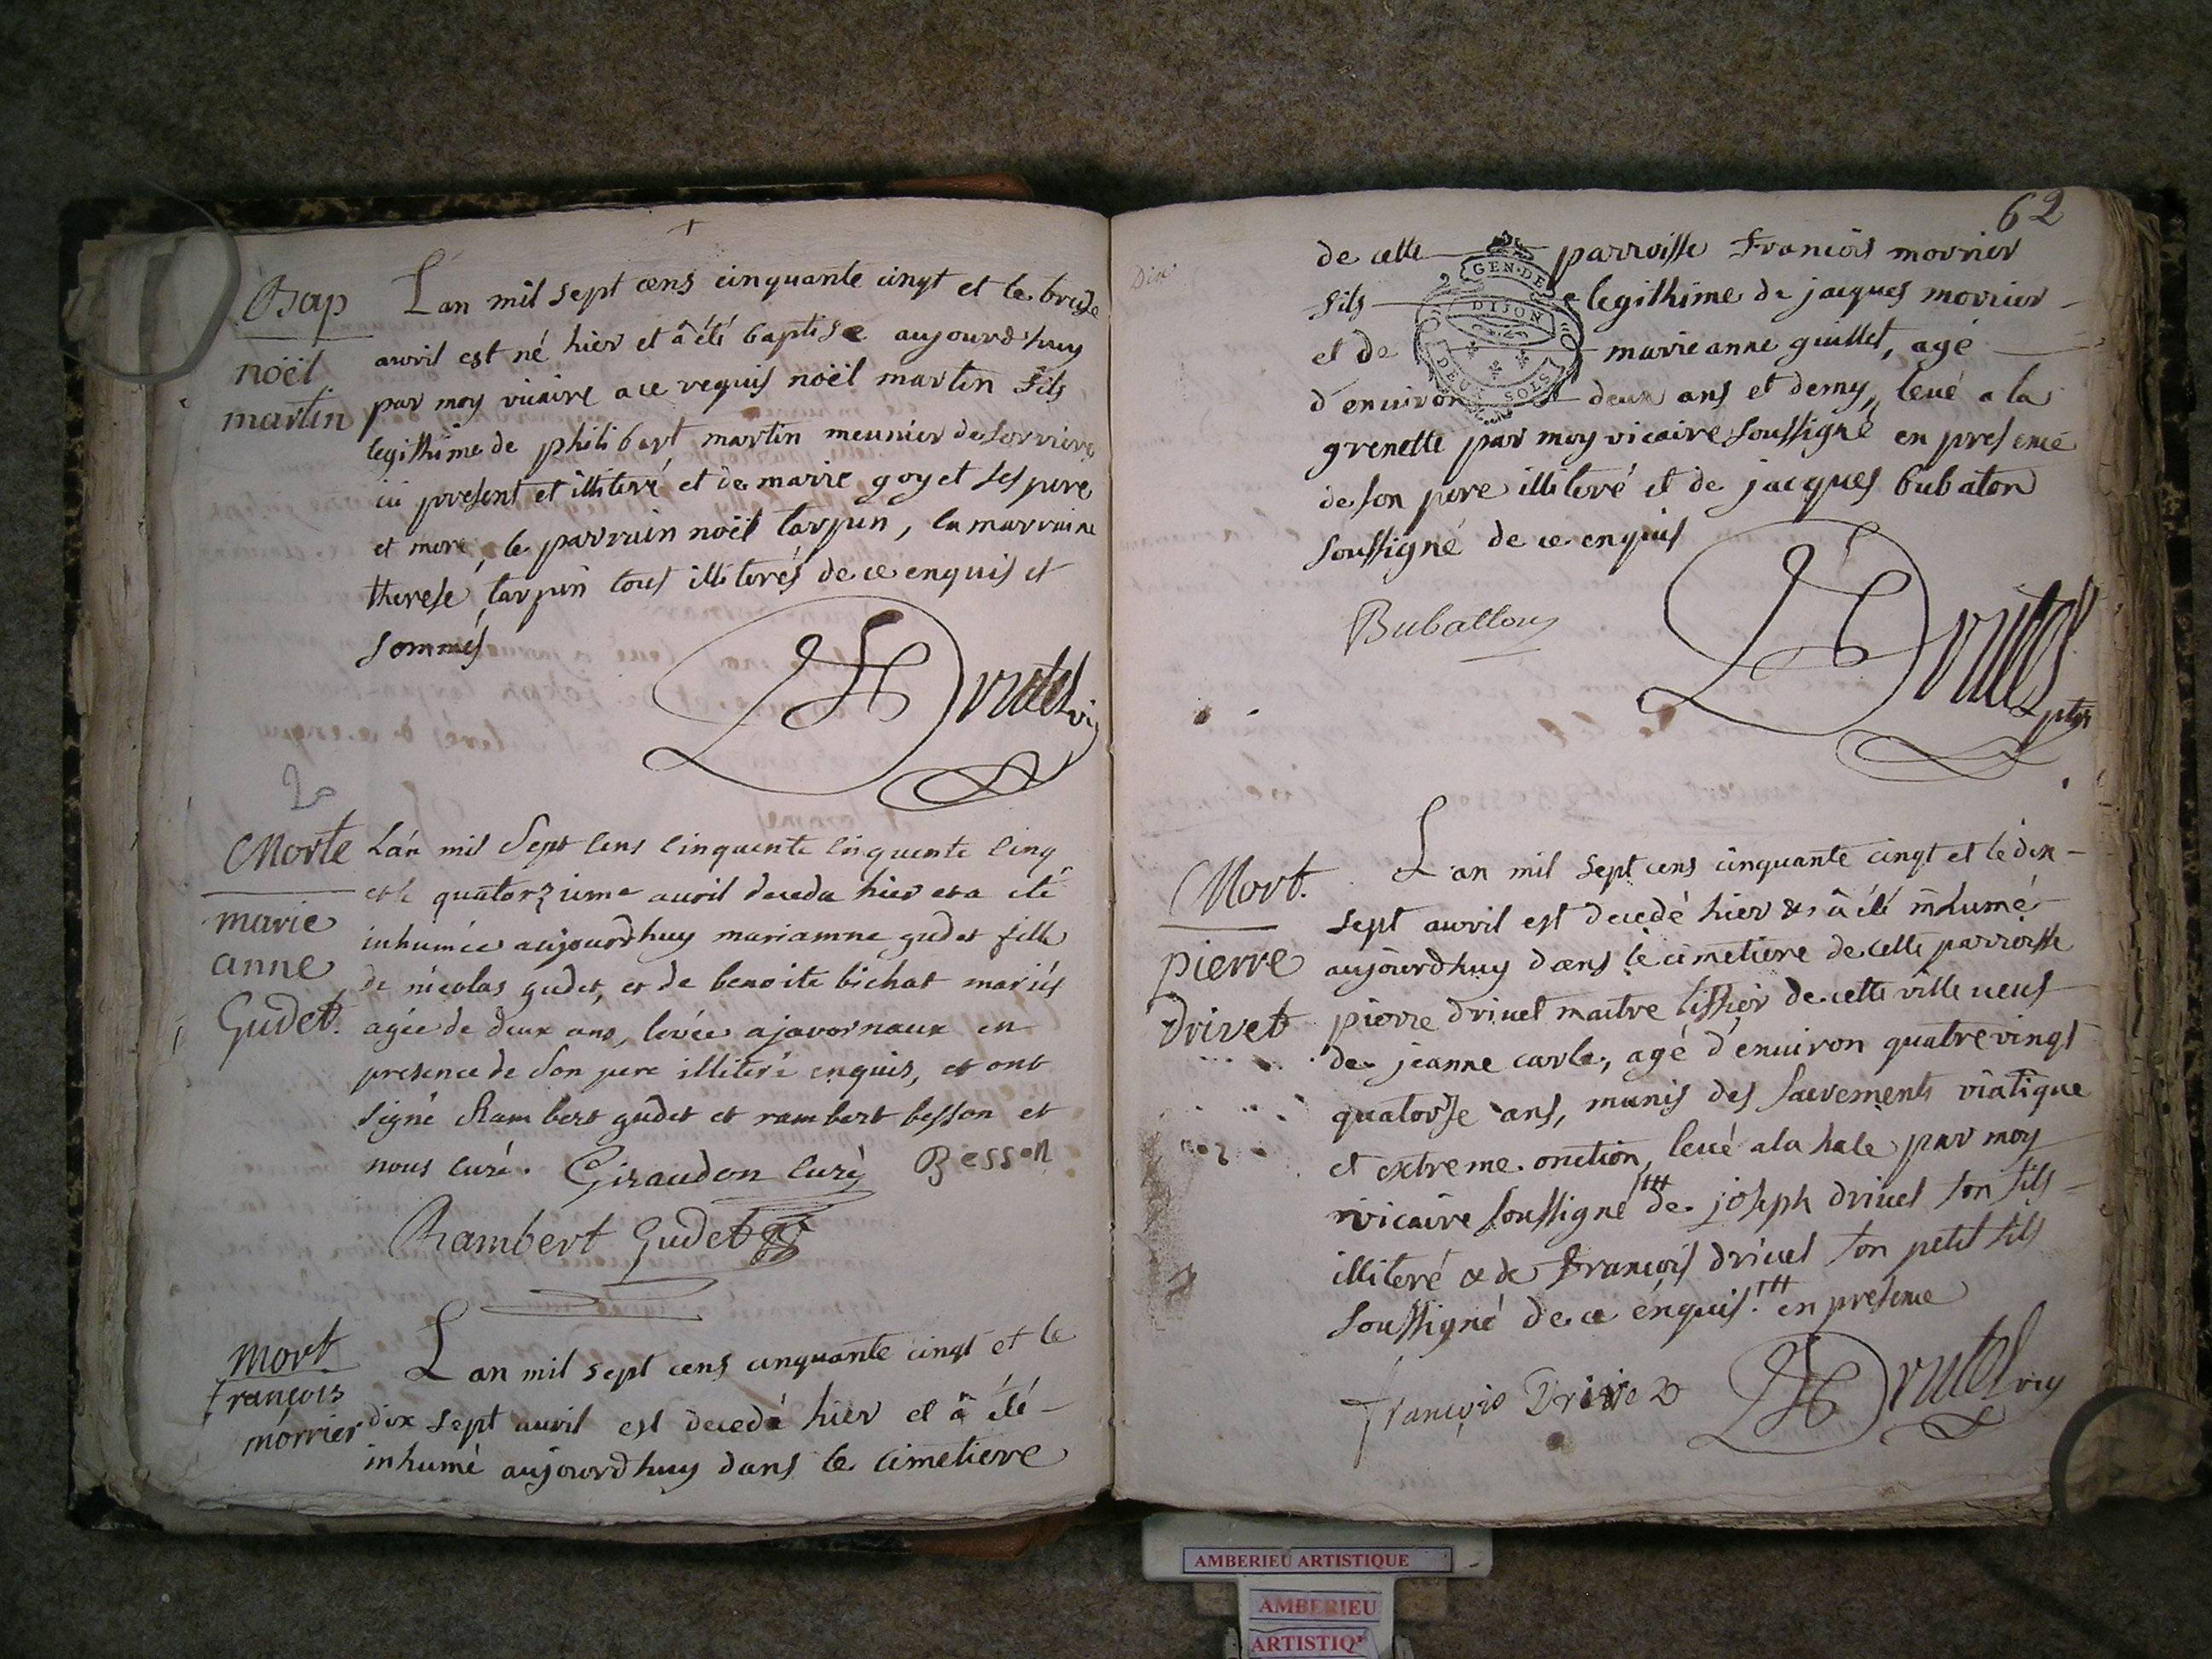 Bap
noël
martin
Lan mil sept cens cinquante cinqt et le treze
avvril est né hier et â été baptisé aujourdhuy
par moy vicaire a ce requis noël martin fils
legithime de philibert martin meunier de
ici present et illiteré et de marie goyet ses pere
et mere, le parrain noël tarpin, la marraine
therese tarpin tous illiterés de ce enquis et
sommés
Drutel vic
Morte
marie
anne
Gudet.
Lán mil Sept Cens Cinquente Cinquente Cinq
et le quatorzieme avril deceda hier et a eté
inhumée aujourdhuy mariamne gudet fille
de nicolas gudet, et de benoite bichat mariés
agée de deux ans, levée a javornaux en
presence de Son pere illiteré enquis, et ont
signé Rambert gudet et rambert besson et
nous curé. Giraudon Curé Besson
Rambert Gudet
Mort
françois
morrier
Lan mil sept cens cinquante cinqt et le
dix sept avvril est decedé hier et â été
inhumé aujourdhuy dans le cimetiere
62
de cette parroisse François morrier
fils legithime de jacques morrier
et de marie anne guillet, agé
d'environ deux ans et demy, levé a la
grenette par moy vicaire soussigné en presence
de son pere illiteré et de jacques bubaton
soussigné de ce enquis
GEN. DE
DIJON
DEUX SOLS
Bubatton
Drutel ptre
Mort.
pierre
Drivet
Lan mil sept cens cinquante cinqt et le dix
sept avvril est decedé hier & â été inhumé
aujourdhuy dens le cimetiere de cette parroisse
pierre drivet maitre tissier de cette ville veuf
de jeanne carle, agé d'environ quatre vingt
quatorse ans, munis des sacrements viatique
et extreme onction, levé a la hale par moy
vicaire soussigné ttt de joseph drivet son fils
illiteré & de François drivet son petit fils
soussigné de ce énquis. ttt en presence
françois Drivet Drutel vic
AMBERIEU ARTISTIQUE
AMBERIEU
ARTISTIQ